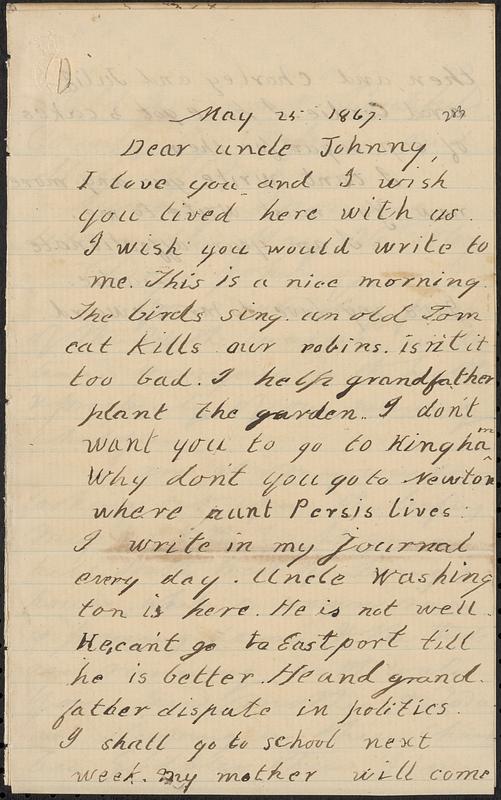 May 25 1867.
Dear uncle Johnny,
I love you and I wish
you lived here with us.
I wish you would write to
me. This is a nice morning.
The birds sing. an old Tom
cat kills our robins. isn't it
too bad. I help grandfather
plant the garden. I don't
want you to go to Hingham
Why don't you go to Newton
where aunt Persis lives.
I write in my Journal
every day. Uncle Washing
ton is here. He is not well.
He, can't go to Eastport till
he is better. He and grand.
father dispute in politics.
I shall go to school next
week. my mother will come